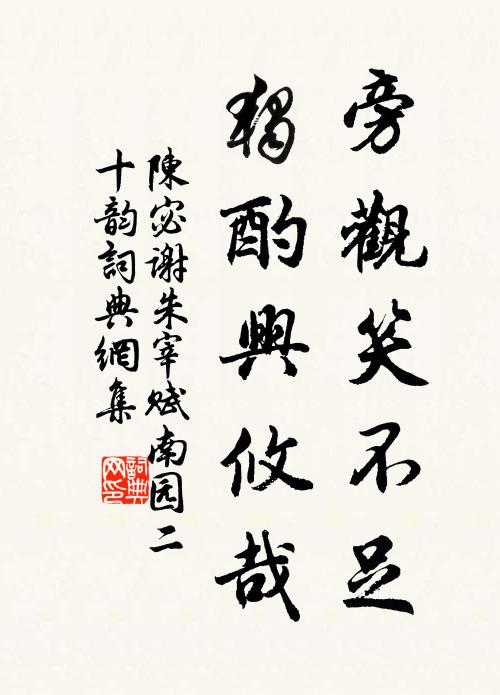 旁觀笑不足
獨酌興攸哉
陳宓谢朱宰赋南园二
十韵詞典網集
詞典
网印